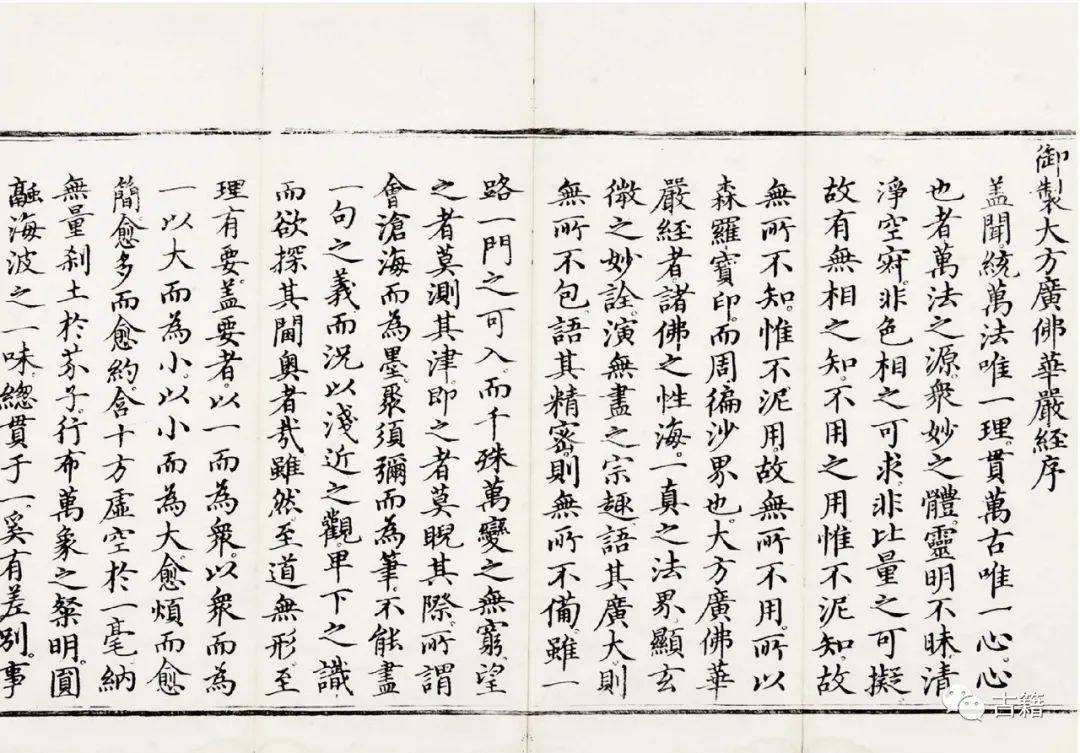 御製大方廣佛華嚴經序
盖聞。統萬法唯一理。貫萬古唯一心。心
也者萬法之源。衆妙之體。靈明不昧。清
淨空寂。非色相之可求。非比量之可擬。
故有無相之知。不用之用。惟不泥知。故
無所不知。惟不泥用。故無所不用。所以
森羅寶印。而周徧沙界也。大方廣佛華
嚴經者諸佛之性海。一真之法界。顯玄
微之妙詮。演無盡之宗趣。語其廣大。則
無所不包。語其精密。則無所不備。雖一
路一門之可入。而千殊萬變之無窮。望
之者莫測其津。即之者莫睨其際。所謂
會滄海而為墨。聚須彌而為筆。不能盡
一句之義。而況以淺近之觀。卑下之識
而欲探其閫奥者哉。雖然。至道無形。至
理有要。盖要者。以一而為衆。以衆而為
一。以大而為小。以小而為大。愈煩而愈
簡。愈多而愈約。含十方虛空於一毫。納
無量刹土於芥子。行布萬象之粲明。圓
融海波之一味。總貫于一。奚有差别。事
古籍